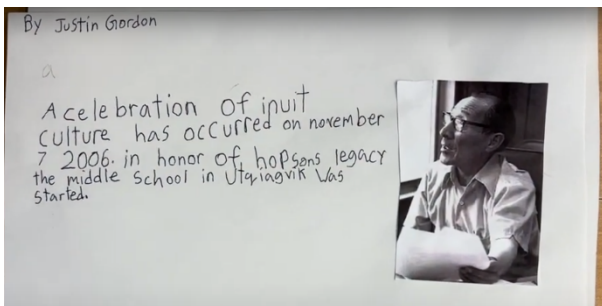 By Justin Gordon
a
A celebration of inuit
culture has occurred on november
7 2006. in honor of hopsons legacy
the middle school in Utqiagvik was
started.